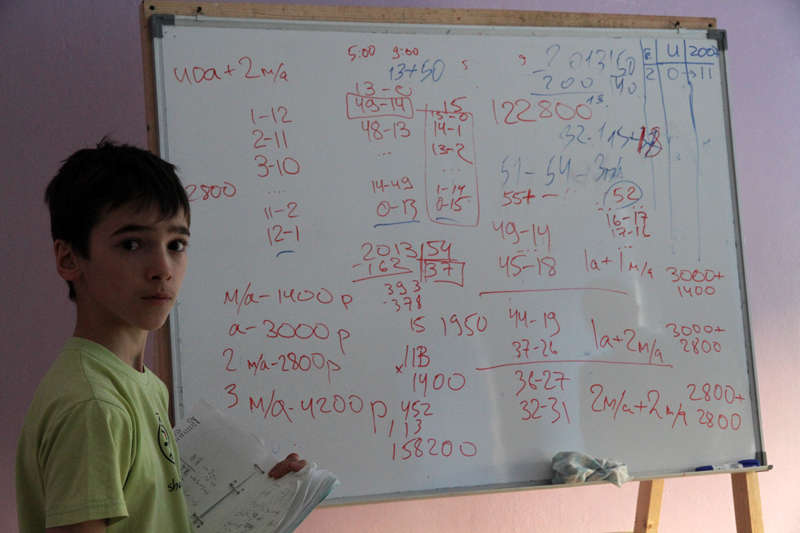 40а+2м/а
1-12
2-11
3-10
....
11-2
12-1
2800
м/а-1400р
а-3000р
2 м/а-2800р
3 м/а-4200р
5:00 9:00
13+50
13-0
49-14
48-13
...
14-49
0-13
15
15-0
14-1
13-2
...
1-14
0-15
2013 54
-162 37
393
-378
15
1950
113
x1400
452
113
158200
2013 50
200 40
122800
51-54-3м/а
55+-
52
16-17
17-12
49-14
...
45-18
1а+1м/а
3000+
1400
44-19
37-26
1а+2м/а
3000+
2800
36-27
32-31
2м/а+2м/а
2800+
2800
4 200
2 0 11